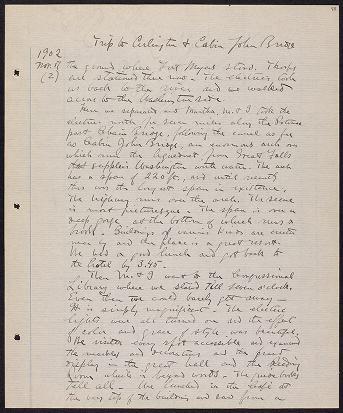 Trip to Arlington & Cabin John Bridge
1902
Nov. 17
(2)
the ground where Fort Myers stood. Troops
are stationed there now. The electrics took
us back to the river and we walked
across to the Washington side.
Here we separated and Martha, M. & I took the
electrics north for seven miles along the Potomac
past Chain Bridge, following the canal as far
as Cabin John Bridge, an enormous arch on
which runs the aqueduct from Great Falls
that supplies Washington with water. The arch
has a span of 220 ft, and until recently
this was the largest span in existence.
The highway runs over the arch. The scene
is most picturesque. The span is over a
deep gorge at the bottom of which runs a
brook. Buildings of various kinds are erected
near by and the place is a great resort.
We had a good lunch and got back to
the hotel by 3.45.
Then M. & I went to the Congressional
Library where we stayed till seven o'clock.
Even then we could barely get away.
It is simply magnificent. The electric
lights were all turned on and the effect
of color and grace of style was beautiful.
We visited every spot accessible and examined
the marbles and decorations and the grand
display in the great hall and the reading
room which is beyond words. The guide books
tell all. We lunched in the café at
the very top of the building and saw from a